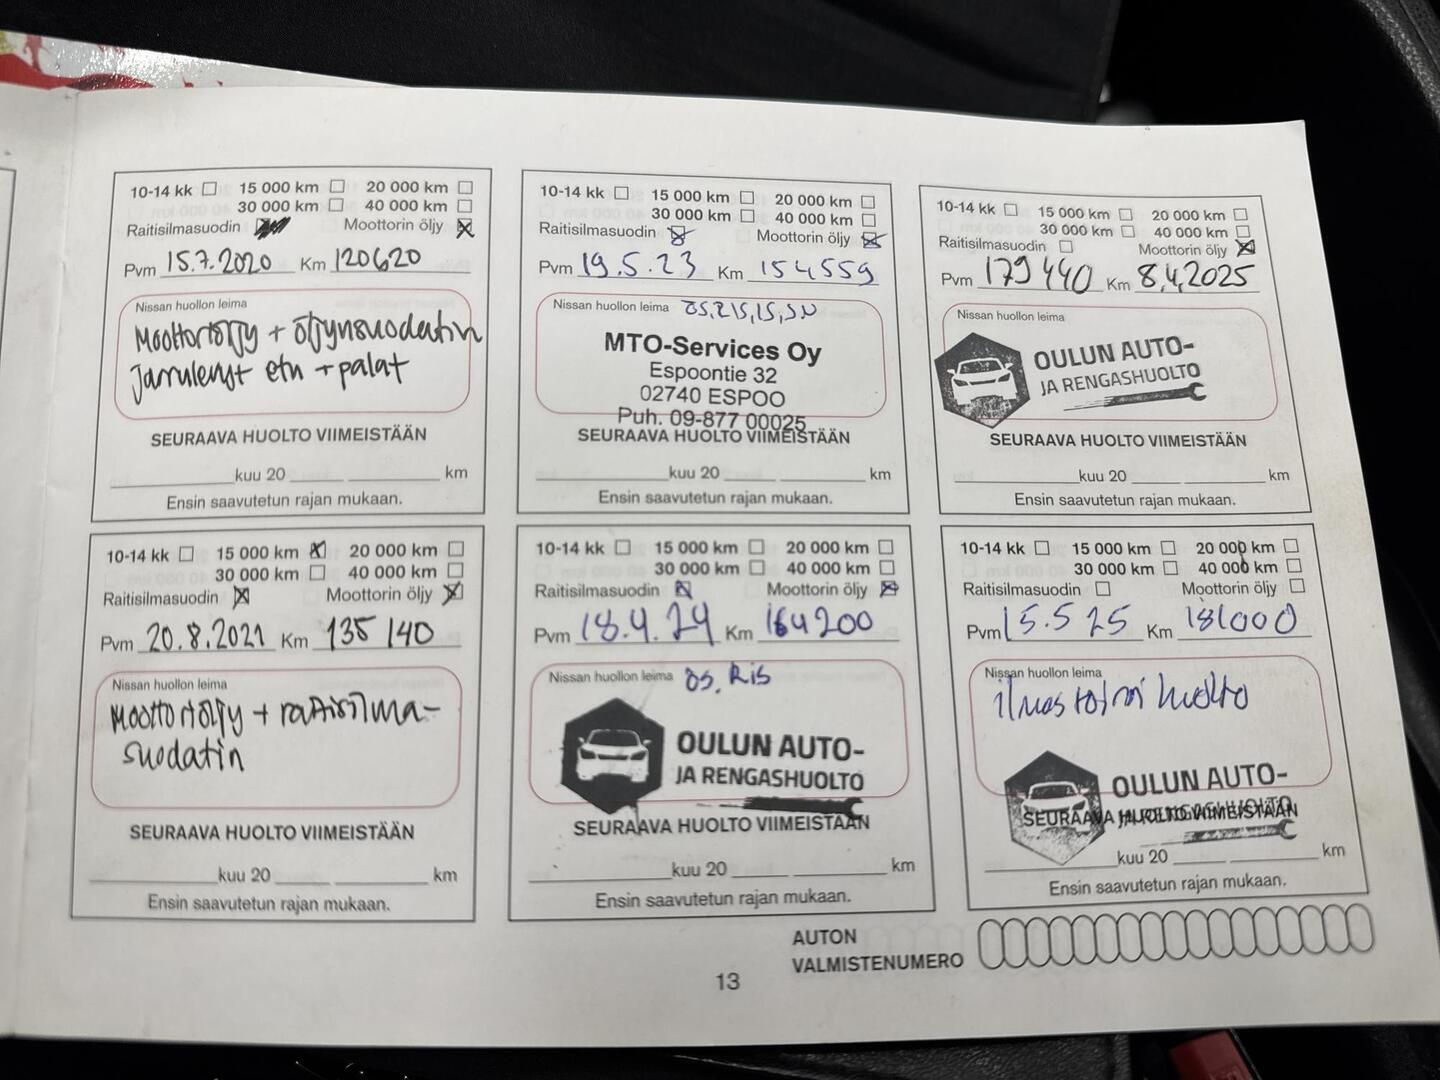 10-14 kk 15 000 km 20 000 km
30 000 km 40 000 km
Raitisilmasuodin Moottorin öljy
Pvm 15.7.2020 Km 120620
Nissan huollon leima
Moottoriöljy + öljynsuodatin
Jarrulevyt etu + palat
SEURAAVA HUOLTO VIIMEISTÄÄN
kuu 20 km
Ensin saavutetun rajan mukaan.
10-14 kk 15 000 km 20 000 km
30 000 km 40 000 km
Raitisilmasuodin Moottorin öljy
Pvm 20.8.2021 Km 135 140
Nissan huollon leima
Moottoriöljy + raitisilma-
suodatin
SEURAAVA HUOLTO VIIMEISTÄÄN
kuu 20 km
Ensin saavutetun rajan mukaan.
10-14 kk 15 000 km 20 000 km
30 000 km 40 000 km
Raitisilmasuodin Moottorin öljy
Pvm 19.5.23 Km 154559
Nissan huollon leima
MTO-Services Oy
Espoontie 32
02740 ESPOO
Puh. 09-877 00025
SEURAAVA HUOLTO VIIMEISTÄÄN
kuu 20 km
Ensin saavutetun rajan mukaan.
10-14 kk 15 000 km 20 000 km
30 000 km 40 000 km
Raitisilmasuodin Moottorin öljy
Pvm 18.4.24 Km 164200
Nissan huollon leima ÖS, RIS
OULUN AUTO-
JA RENGASHUOLTO
SEURAAVA HUOLTO VIIMEISTÄÄN
kuu 20 km
Ensin saavutetun rajan mukaan.
10-14 kk 15 000 km 20 000 km
30 000 km 40 000 km
Raitisilmasuodin Moottorin öljy
Pvm 179440 Km 8,4,2025
Nissan huollon leima
OULUN AUTO-
JA RENGASHUOLTO
SEURAAVA HUOLTO VIIMEISTÄÄN
kuu 20 km
Ensin saavutetun rajan mukaan.
10-14 kk 15 000 km 20 000 km
30 000 km 40 000 km
Raitisilmasuodin Moottorin öljy
Pvm 15.5 25 Km 181000
Nissan huollon leima
ilmastoini huolto
OULUN AUTO-
JA RENGASHUOLTO
SEURAAVA HUOLTO VIIMEISTÄÄN
kuu 20 km
Ensin saavutetun rajan mukaan.
AUTON
VALMISTENUMERO
13